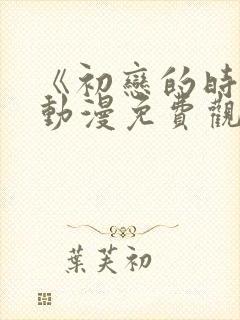 《初戀的時
動漫免費觀
葉芙初